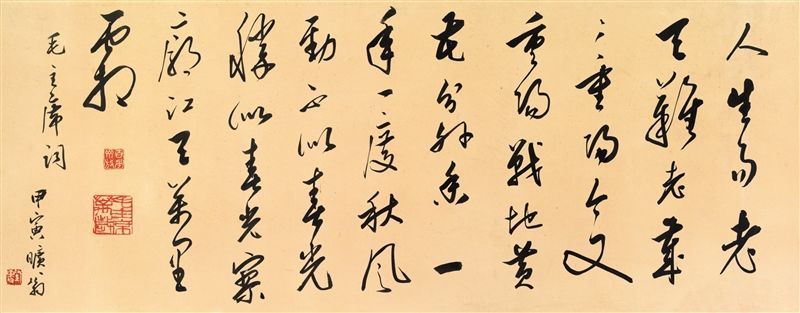 人生易老
天難老歲
〻重陽今又
重陽戰地黄
花分外香一
年一度秋風
勁不似春光
勝似春光寥
廓江天萬里
霜
毛主席詞 甲寅曠翁